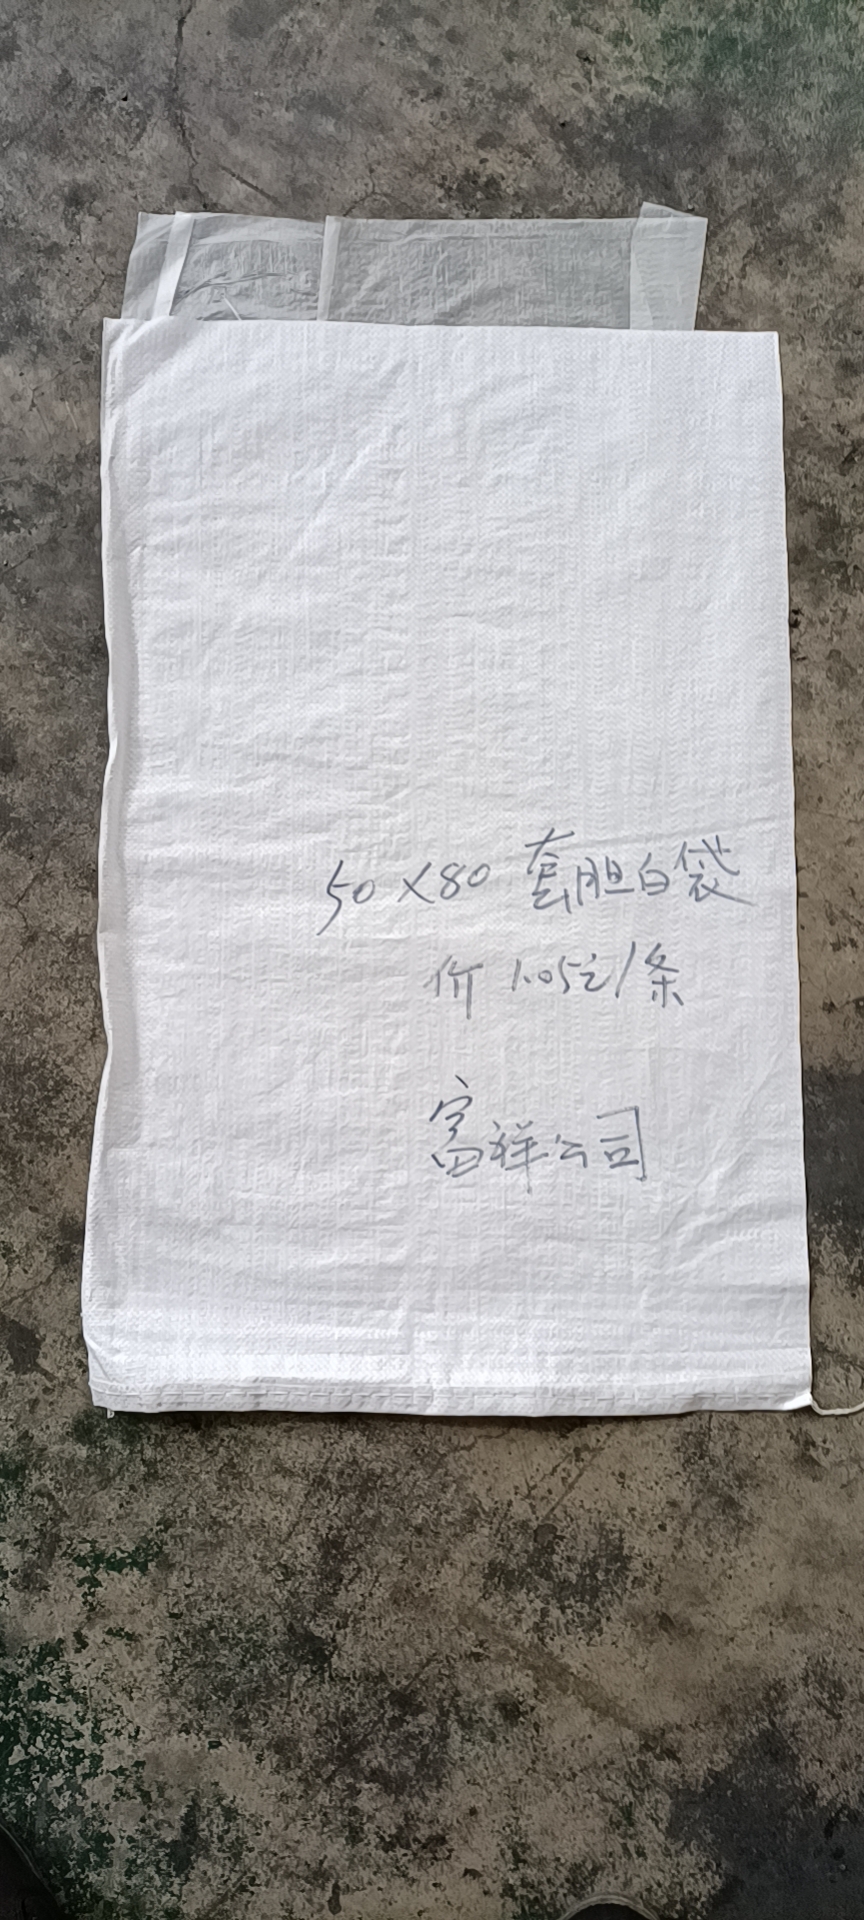 50×80 套胆白袋
价 1.05元/条
富祥公司